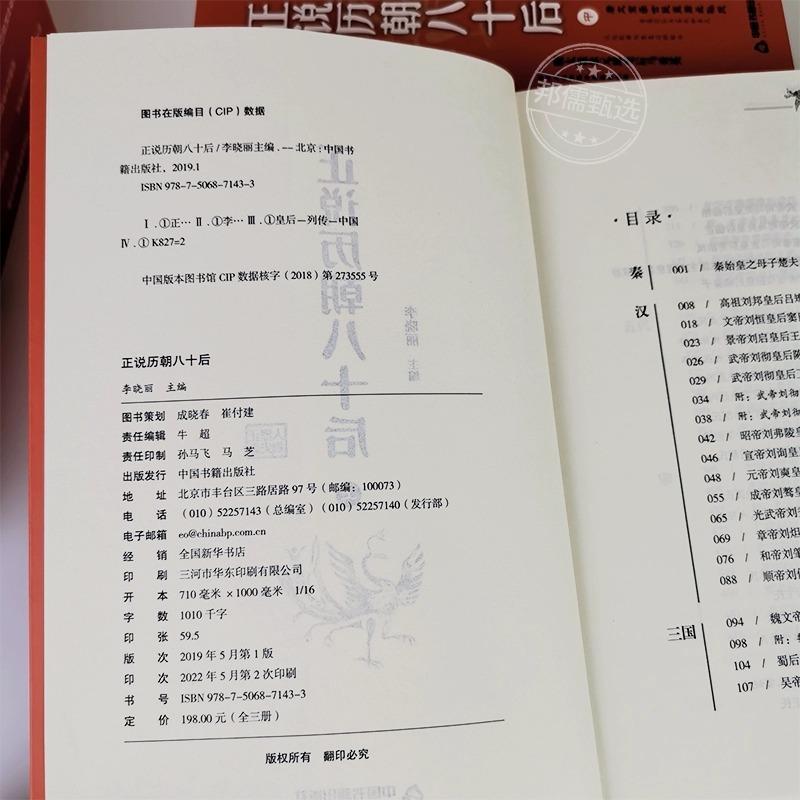 正说历朝八十后
中
邦儒甄选
图书在版编目（CIP）数据
正说历朝八十后/李晓丽主编. -- 北京：中国书
籍出版社，2019.1
ISBN 978-7-5068-7143-3
Ⅰ.①正… Ⅱ.①李… Ⅲ.①皇后－列传－中国
Ⅳ.① K827=2
中国版本图书馆 CIP 数据核字（2018）第 273555 号
正说历朝八十后
李晓丽 主编
图书策划 成晓春 崔付建
责任编辑 牛 超
责任印制 孙马飞 马 芝
出版发行 中国书籍出版社
地 址 北京市丰台区三路居路 97 号（邮编：100073）
电 话 （010）52257143（总编室）（010）52257140（发行部）
电子邮箱 eo@chinabp.com.cn
经 销 全国新华书店
印 刷 三河市华东印刷有限公司
开 本 710 毫米 × 1000 毫米 1/16
字 数 1010 千字
印 张 59.5
版 次 2019 年 5 月第 1 版
印 次 2022 年 5 月第 2 次印刷
书 号 ISBN 978-7-5068-7143-3
定 价 198.00 元（全三册）
版权所有 翻印必究
·目录·
秦 001 / 秦始皇之母子楚夫
汉 008 / 高祖刘邦皇后吕
018 / 文帝刘恒皇后窦
023 / 景帝刘启皇后王
026 / 武帝刘彻皇后
029 / 武帝刘彻皇后
034 / 附：武帝刘彻
038 / 附：武帝刘彻
042 / 昭帝刘弗陵皇
046 / 宣帝刘询皇
048 / 元帝刘奭皇
055 / 成帝刘骜皇
065 / 光武帝刘
069 / 章帝刘炟
076 / 和帝刘肇
088 / 顺帝刘
三国 094 / 魏文帝
098 / 附：
104 / 蜀后
107 / 吴帝